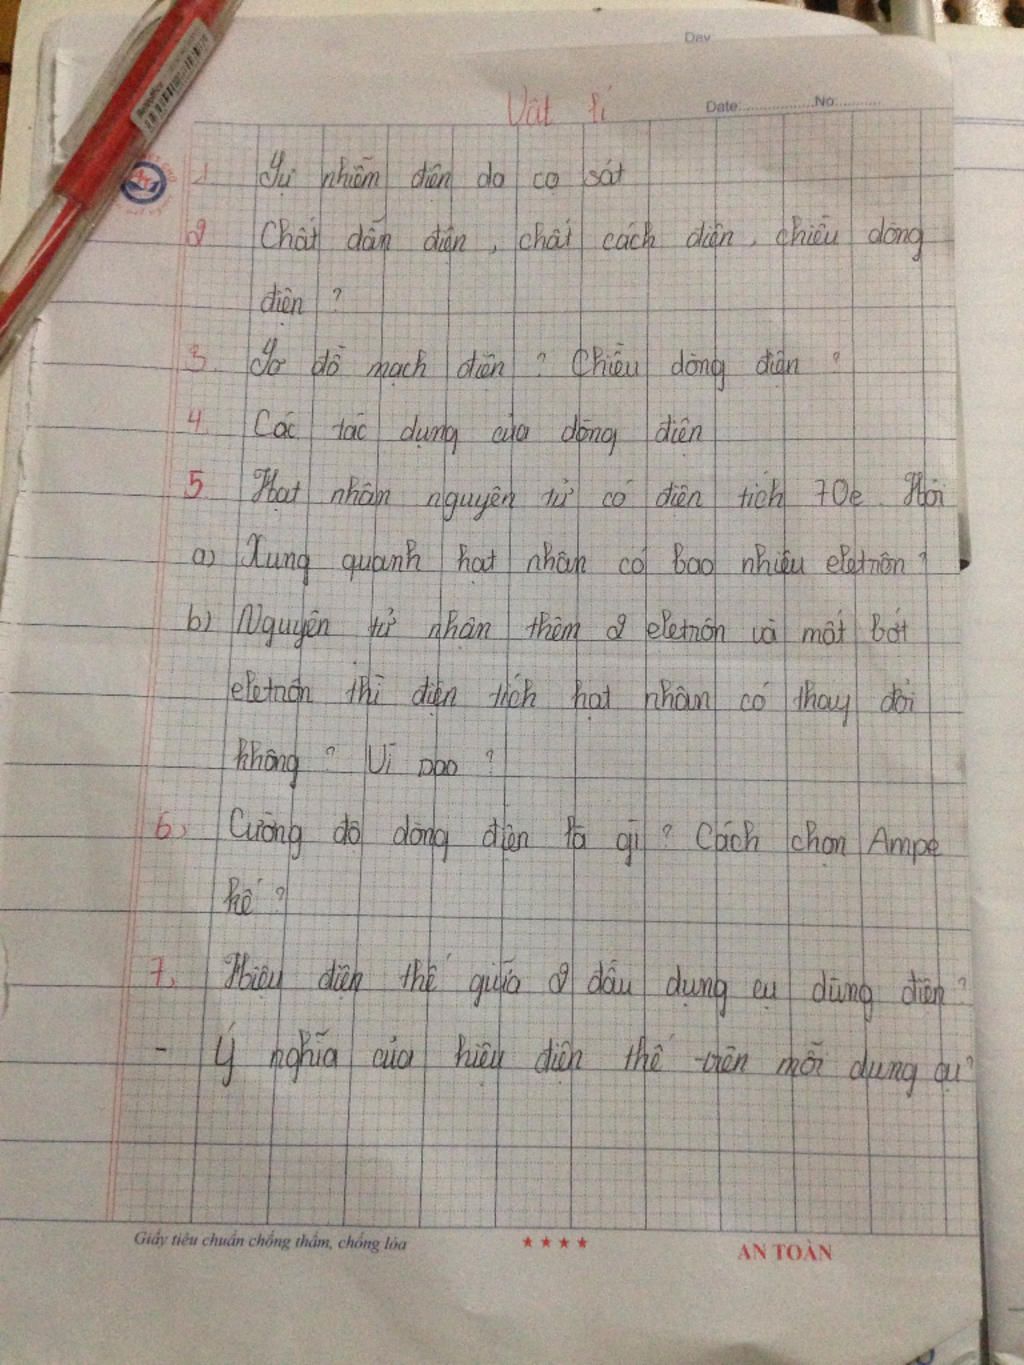 Day
Vật lí
Date: No:
1 Sự nhiễm điện do cọ sát
2 Chất dẫn điện, chất cách điện, chiều dòng
điện ?
3. Sơ đồ mạch điện ? Chiều dòng điện ?
4. Các tác dụng của dòng điện
5 Hạt nhân nguyên tử có điện tích 70e. Hỏi
a) Xung quanh hạt nhân có bao nhiêu eletrôn ?
b) Nguyên tử nhận thêm 2 eletrôn và mất bớt
eletrôn thì điện tích hạt nhân có thay đổi
không ? Vì sao ?
6, Cường độ dòng điện là gì ? Cách chọn Ampe
kế ?
7, Hiệu điện thế giữa 2 đầu dụng cụ dùng điện ?
- Ý nghĩa của hiệu điện thế trên mỗi dụng cụ ?
Giấy tiêu chuẩn chống thấm, chống lóa
★★★★
AN TOÀN